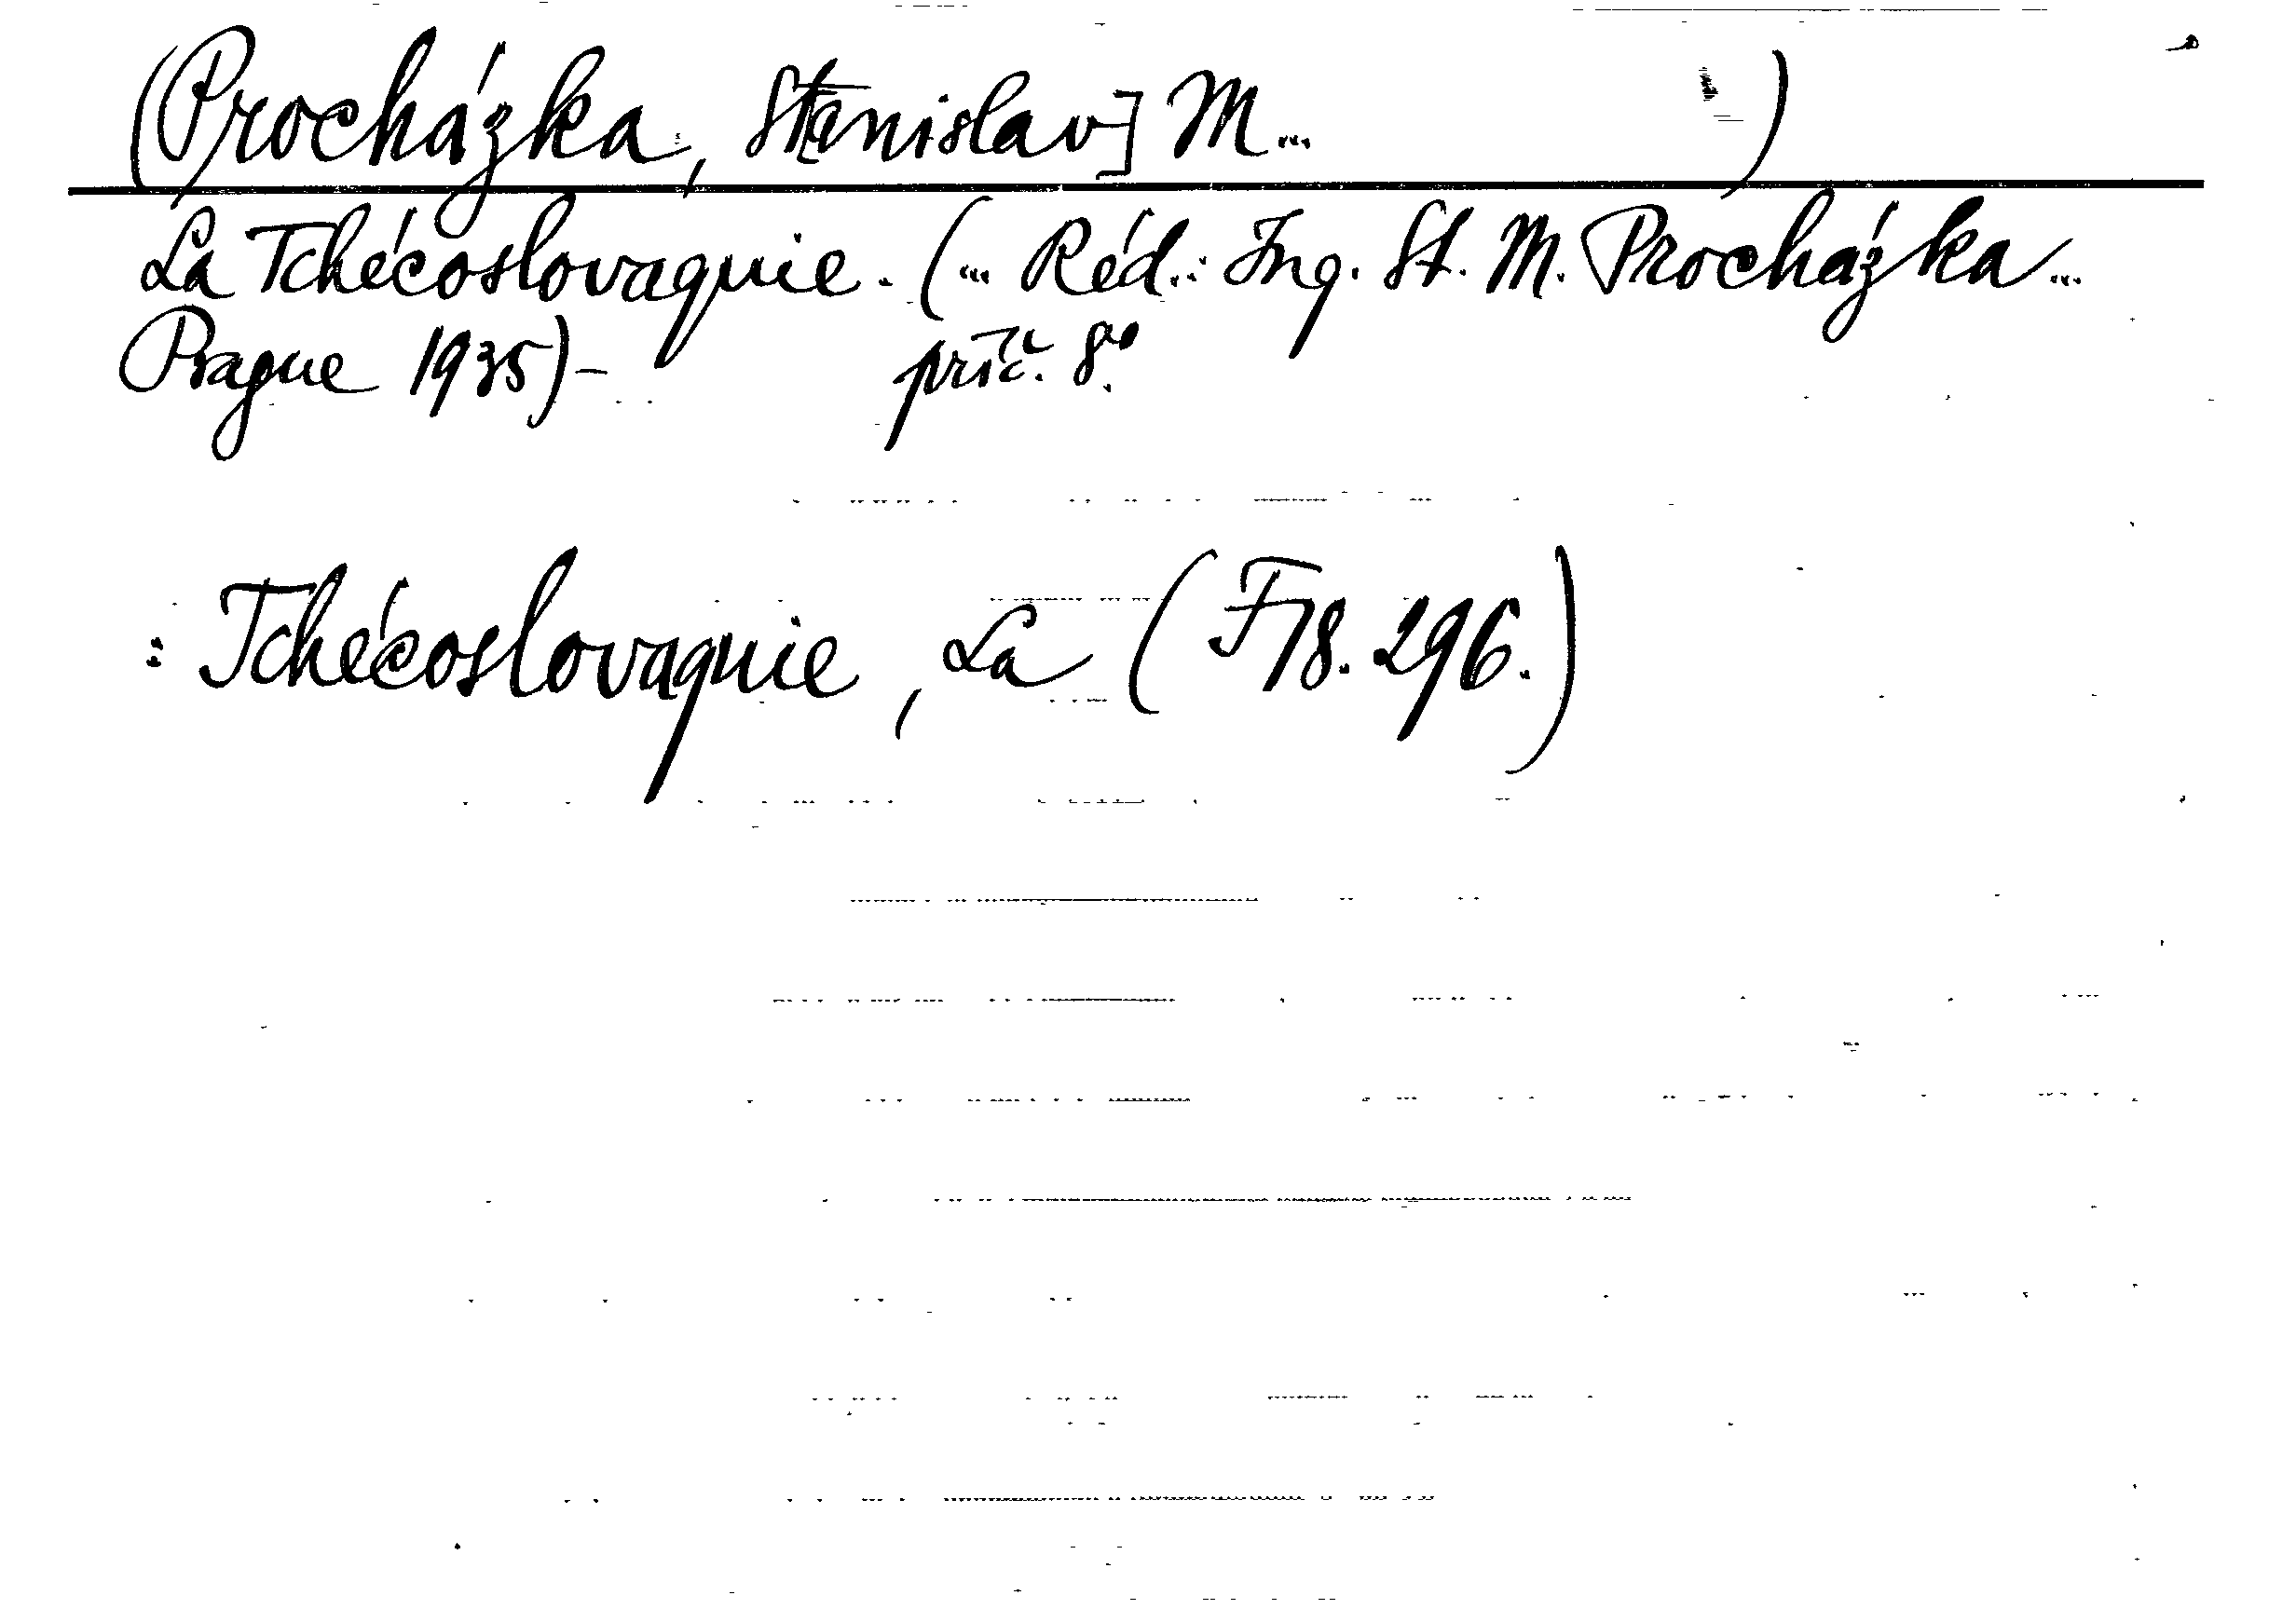 (Procházka, St[anislav] M... )
La Tchécoslovaquie. (... Réd.: Ing. St. M. Procházka...
Prague 1935)- příč. 8°.
: Tchécoslovaquie, La (F 78.296.)